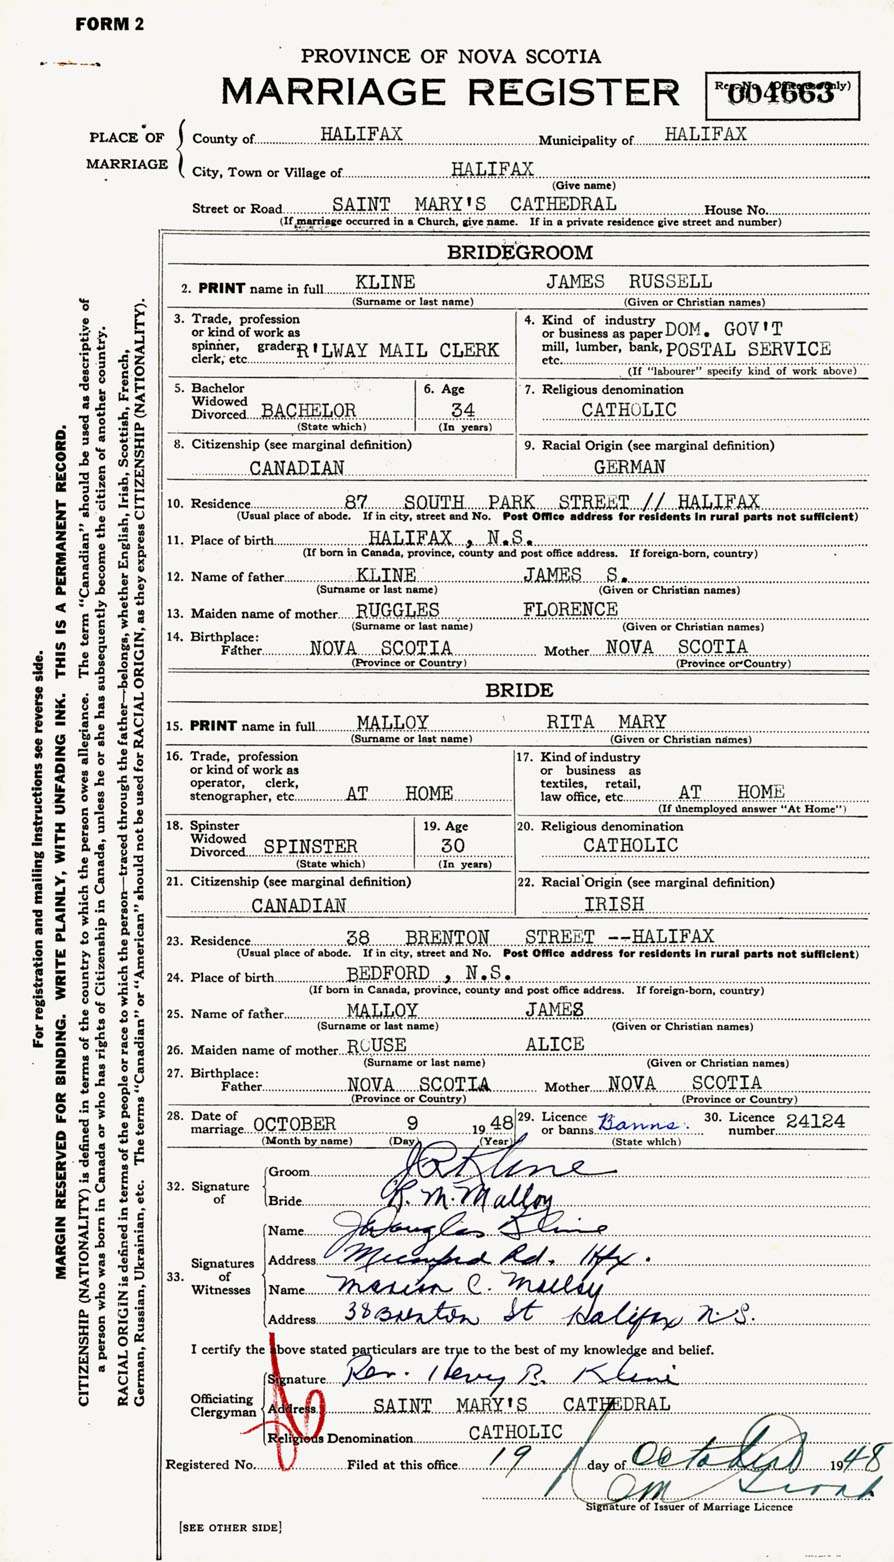 FORM 2
PROVINCE OF NOVA SCOTIA
MARRIAGE REGISTER
004663
PLACE OF MARRIAGE
County of HALIFAX Municipality of HALIFAX
City, Town or Village of HALIFAX
(Give name)
Street or Road SAINT MARY'S CATHEDRAL House No.
(If marriage occurred in a Church, give name. If in a private residence give street and number)
BRIDEGROOM
2. PRINT name in full KLINE JAMES RUSSELL
(Surname or last name) (Given or Christian names)
3. Trade, profession
or kind of work as
spinner, grader
clerk, etc. R'LWAY MAIL CLERK
4. Kind of industry
or business as paper DOM. GOV'T
mill, lumber, bank, POSTAL SERVICE
etc.
(If "labourer" specify kind of work above)
5. Bachelor
Widowed
Divorced BACHELOR
(State which)
6. Age
34
(In years)
7. Religious denomination
CATHOLIC
8. Citizenship (see marginal definition)
CANADIAN
9. Racial Origin (see marginal definition)
GERMAN
10. Residence 87 SOUTH PARK STREET // HALIFAX
(Usual place of abode. If in city, street and No. Post Office address for residents in rural parts not sufficient)
11. Place of birth HALIFAX , N.S.
(If born in Canada, province, county and post office address. If foreign-born, country)
12. Name of father KLINE JAMES S.
(Surname or last name) (Given or Christian names)
13. Maiden name of mother RUGGLES FLORENCE
(Surname or last name) (Given or Christian names)
14. Birthplace:
Father NOVA SCOTIA Mother NOVA SCOTIA
(Province or Country) (Province or Country)
BRIDE
15. PRINT name in full MALLOY RITA MARY
(Surname or last name) (Given or Christian names)
16. Trade, profession
or kind of work as
operator, clerk,
stenographer, etc. AT HOME
17. Kind of industry
or business as
textiles, retail,
law office, etc. AT HOME
(If unemployed answer "At Home")
18. Spinster
Widowed
Divorced SPINSTER
(State which)
19. Age
30
(In years)
20. Religious denomination
CATHOLIC
21. Citizenship (see marginal definition)
CANADIAN
22. Racial Origin (see marginal definition)
IRISH
23. Residence 38 BRENTON STREET --HALIFAX
(Usual place of abode. If in city, street and No. Post Office address for residents in rural parts not sufficient)
24. Place of birth BEDFORD , N.S.
(If born in Canada, province, county and post office address. If foreign-born, country)
25. Name of father MALLOY JAMES
(Surname or last name) (Given or Christian names)
26. Maiden name of mother ROUSE ALICE
(Surname or last name) (Given or Christian names)
27. Birthplace:
Father NOVA SCOTIA Mother NOVA SCOTIA
(Province or Country) (Province or Country)
28. Date of
marriage OCTOBER 9 1948
(Month by name) (Day) (Year)
29. Licence
or banns Banns.
(State which)
30. Licence
number 24124
32. Signature of
Groom J R Kline
Bride R. M. Malloy
33. Signatures of Witnesses
Name J Douglas Kline
Address Rd. Hfx.
Name Marion C. Malloy
Address 38 Brenton St Halifax N.S.
I certify the above stated particulars are true to the best of my knowledge and belief.
Officiating Clergyman
Signature Rev. Henry B. Kline
Address SAINT MARY'S CATHEDRAL
Religious Denomination CATHOLIC
Registered No. Filed at this office 19 day of October 1948
Signature of Issuer of Marriage Licence
[SEE OTHER SIDE]
For registration and mailing instructions see reverse side.
MARGIN RESERVED FOR BINDING. WRITE PLAINLY, WITH UNFADING INK. THIS IS A PERMANENT RECORD.
CITIZENSHIP (NATIONALITY) is defined in terms of the country to which the person owes allegiance. The term "Canadian" should be used as descriptive of
a person who was born in Canada or who has rights of Citizenship in Canada, unless he or she has subsequently become the citizen of another country.
RACIAL ORIGIN is defined in terms of the people or race to which the person—traced through the father—belongs, whether English, Irish, Scottish, French,
German, Russian, Ukrainian, etc. The terms "Canadian" or "American" should not be used for RACIAL ORIGIN, as they express CITIZENSHIP (NATIONALITY).